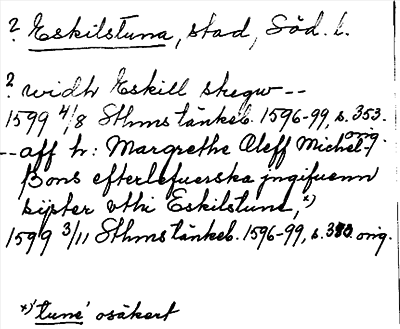 ? Eskilstuna, stad, Söd. l.
? widh Eskill skegw --
1599 4/8 Sthms tänkeb. 1596-99, s. 353. orig.
-- aff h: Margrethe Oleff Michel-
Bons efterlefuerska jngifuenn
sijster vthi Eskilstune, x)
1599 3/11 Sthms tänkeb. 1596-99, s. 383 orig.
x) 'tune' osäkert